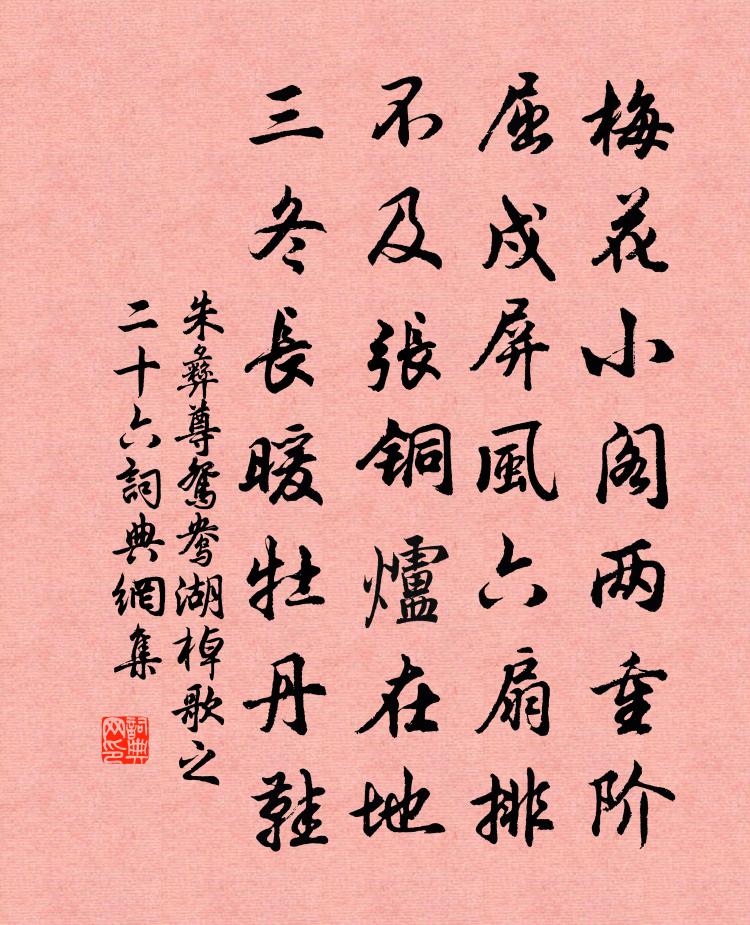 梅花小阁两重阶
屈戍屏風六扇排
不及張铜爐在地
三冬長暖牡丹鞋
朱彝尊鴛鴦湖棹歌之
二十六詞典網集
詞典網印